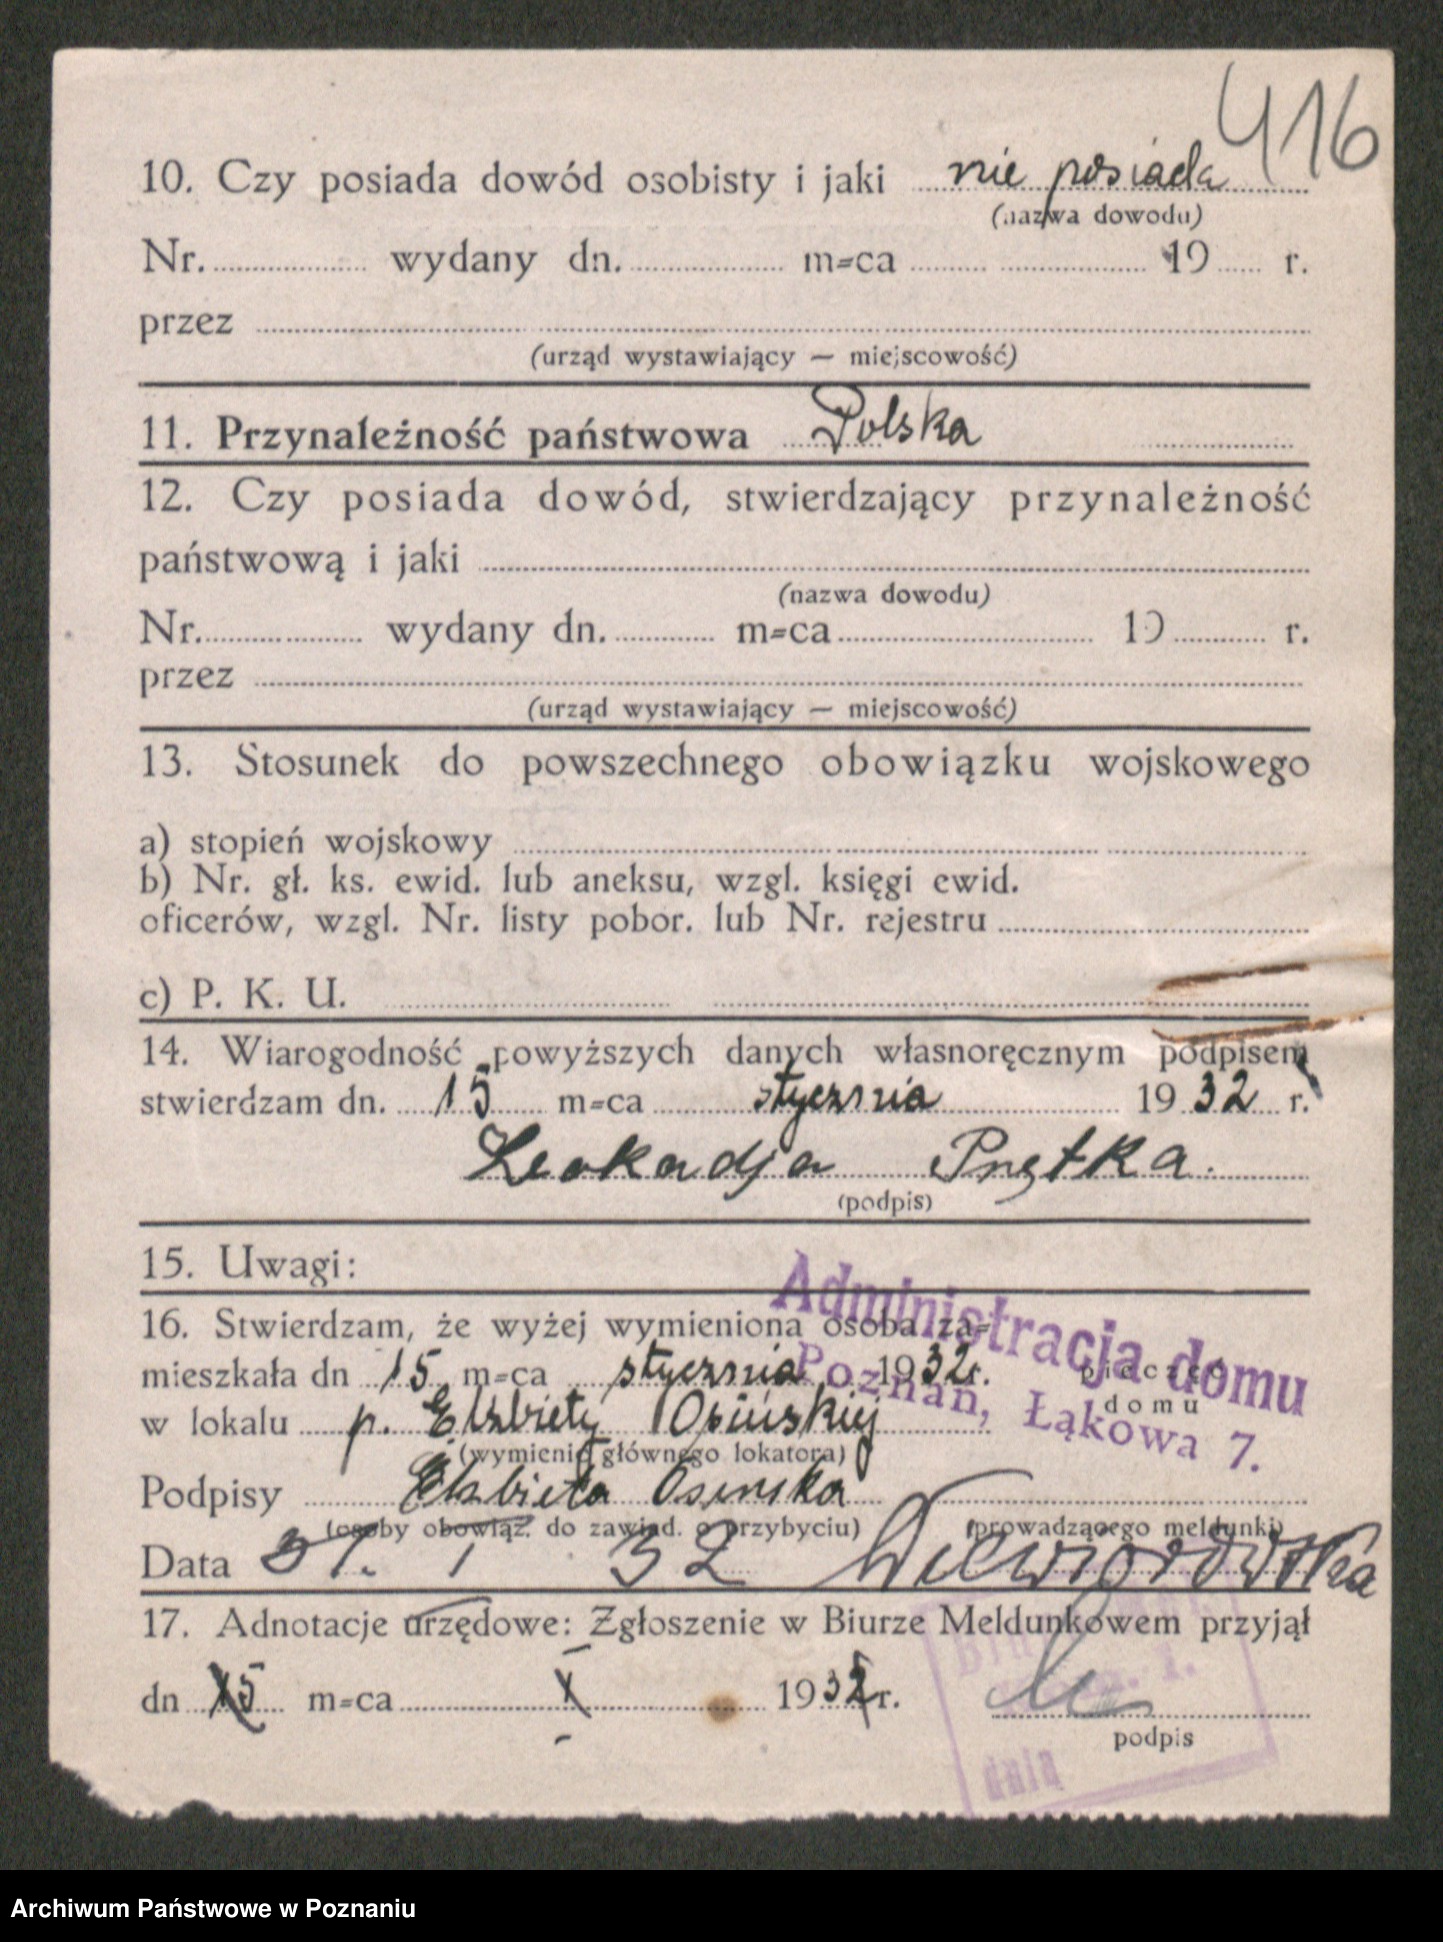 416
10. Czy posiada dowód osobisty i jaki nie posiada
(nazwa dowodu)
Nr. wydany dn. m=ca 19 r.
przez
(urząd wystawiający — miejscowość)
11. Przynależność państwowa Polska
12. Czy posiada dowód, stwierdzający przynależność
państwową i jaki
(nazwa dowodu)
Nr. wydany dn. m=ca 19 r.
przez
(urząd wystawiający — miejscowość)
13. Stosunek do powszechnego obowiązku wojskowego
a) stopień wojskowy
b) Nr. gł. ks. ewid. lub aneksu, wzgl. księgi ewid.
oficerów, wzgl. Nr. listy pobor. lub Nr. rejestru
c) P. K. U.
14. Wiarogodność powyższych danych własnoręcznym podpisem
stwierdzam dn. 15 m=ca stycznia 1932 r.
Leokadja Prętka.
(podpis)
15. Uwagi:
Administracja domu
Poznań, Łąkowa 7.
16. Stwierdzam, że wyżej wymieniona osoba za=
mieszkała dn 15 m=ca stycznia 1932 r. pieczęć
w lokalu p. Elżbiety Osińskiej domu
(wymienić głównego lokatora)
Podpisy Elżbieta Osinska
(osoby obowiąz. do zawiad. o przybyciu) (prowadzącego meldunki)
Data 31. I 32
17. Adnotacje urzędowe: Zgłoszenie w Biurze Meldunkowem przyjął
dn 15 m=ca I 1932 r.
podpis
dnia
Archiwum Państwowe w Poznaniu